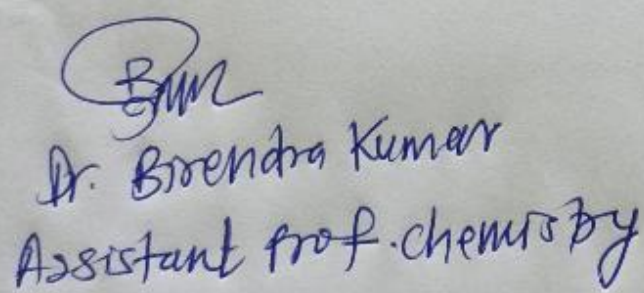 Dr. Birendra Kumar
Assistant Prof. Chemistry